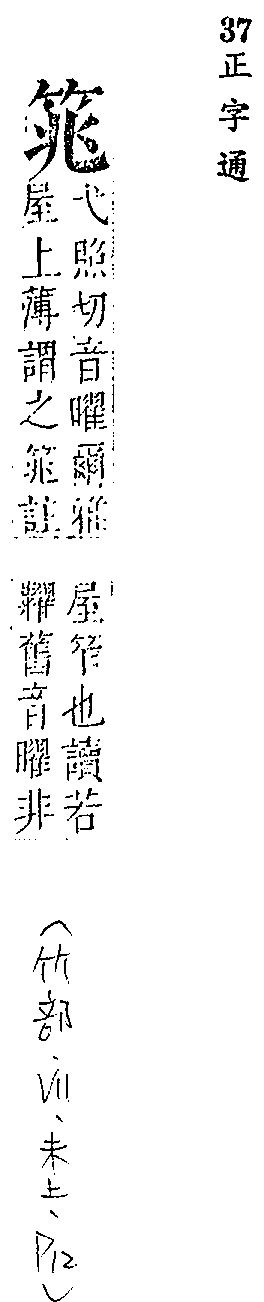 37 正字通
筄
弋照切音曜爾雅
屋上薄謂之筄註
屋笮也讀若
糶舊音曜非
(竹部、VII、未上、P12)